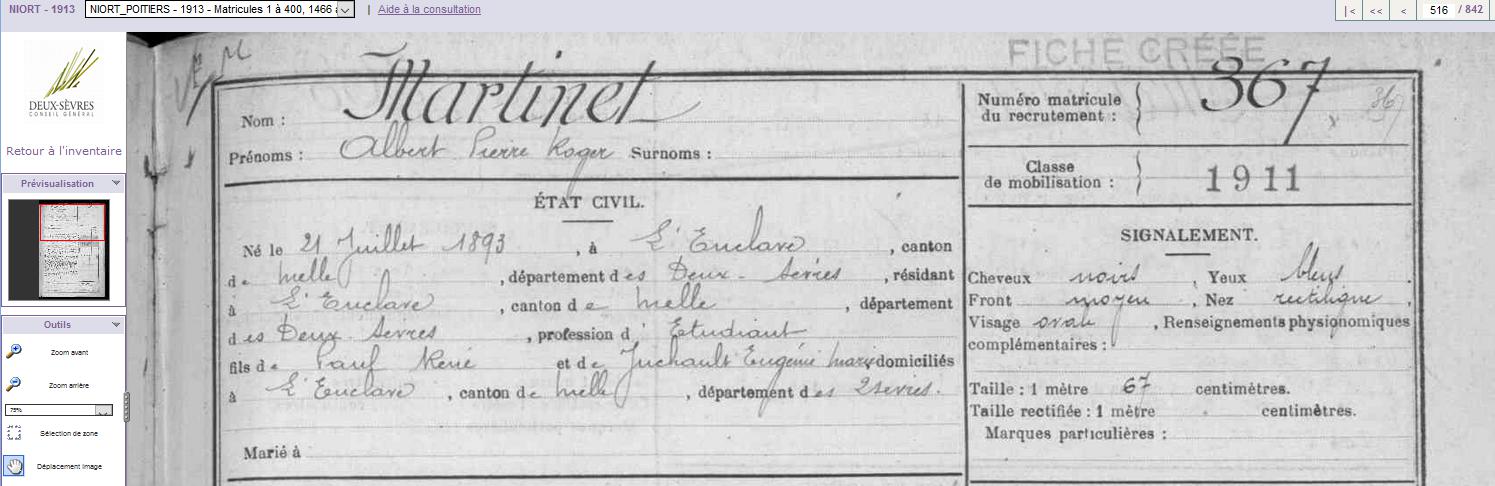 NIORT - 1913 NIORT_POITIERS - 1913 - Matricules 1 à 400, 1466 | Aide à la consultation |< << < 516 / 842
DEUX-SÈVRES
CONSEIL GÉNÉRAL
Retour à l'inventaire
Prévisualisation
Outils
Zoom avant
Zoom arrière
75%
Sélection de zone
Déplacement image
FICHE CRÉÉE
Nom : Martinet
Prénoms : Albert Pierre Roger Surnoms :
ÉTAT CIVIL.
Né le 21 Juillet 1893, à L'Enclave, canton
de Melle, département des Deux-Sèvres, résidant
à L'Enclave, canton de Melle, département
des Deux Sèvres, profession d'Etudiant
fils de Paul René et de Juchault Eugénie Marie domiciliés
à L'Enclave, canton de Melle, département des 2 Sèvres.
Marié à
Numéro matricule
du recrutement : 367
367
Classe
de mobilisation : 1911
SIGNALEMENT.
Cheveux noirs, Yeux bleus.
Front moyen, Nez rectiligne,
Visage ovale, Renseignements physionomiques
complémentaires :
Taille : 1 mètre 67 centimètres.
Taille rectifiée : 1 mètre centimètres.
Marques particulières :